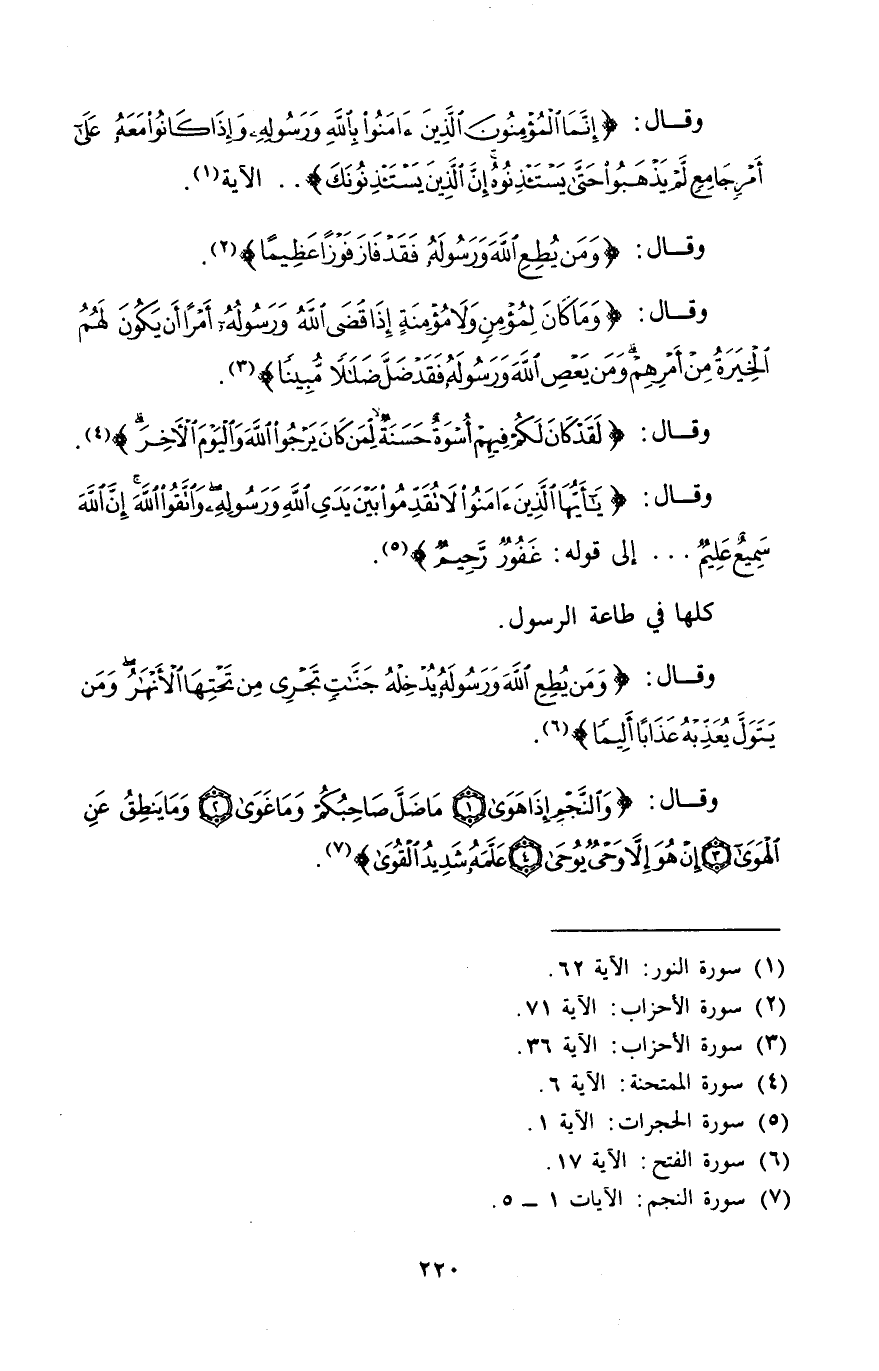 وقـال: ﴿إِنَّمَا الْمُؤْمِنُونَ الَّذِينَ ءَامَنُوا بِاللَّهِ وَرَسُولِهِ وَإِذَا كَانُوا مَعَهُ عَلَىٰ
أَمْرٍ جَامِعٍ لَّمْ يَذْهَبُوا حَتَّىٰ يَسْتَـْٔذِنُوهُ ۚ إِنَّ الَّذِينَ يَسْتَـْٔذِنُونَكَ﴾.. الآية(١).
وقـال: ﴿وَمَن يُطِعِ اللَّهَ وَرَسُولَهُ فَقَدْ فَازَ فَوْزًا عَظِيمًا﴾(٢).
وقـال: ﴿وَمَا كَانَ لِمُؤْمِنٍ وَلَا مُؤْمِنَةٍ إِذَا قَضَى اللَّهُ وَرَسُولُهُ أَمْرًا أَن يَكُونَ لَهُمُ
الْخِيَرَةُ مِنْ أَمْرِهِمْ ۗ وَمَن يَعْصِ اللَّهَ وَرَسُولَهُ فَقَدْ ضَلَّ ضَلَٰلًا مُّبِينًا﴾(٣).
وقـال: ﴿لَقَدْ كَانَ لَكُمْ فِيهِمْ أُسْوَةٌ حَسَنَةٌ لِّمَن كَانَ يَرْجُوا اللَّهَ وَالْيَوْمَ الْآخِرَ ۚ﴾(٤).
وقـال: ﴿يَٰٓأَيُّهَا الَّذِينَ ءَامَنُوا لَا تُقَدِّمُوا بَيْنَ يَدَىِ اللَّهِ وَرَسُولِهِ ۖ وَاتَّقُوا اللَّهَ ۚ إِنَّ اللَّهَ
سَمِيعٌ عَلِيمٌ ... إلى قوله: غَفُورٌ رَّحِيمٌ﴾(٥).
كلها في طاعة الرسول.
وقـال: ﴿وَمَن يُطِعِ اللَّهَ وَرَسُولَهُ يُدْخِلْهُ جَنَّٰتٍ تَجْرِى مِن تَحْتِهَا الْأَنْهَٰرُ ۖ وَمَن
يَتَوَلَّ يُعَذِّبْهُ عَذَابًا أَلِيمًا﴾(٦).
وقـال: ﴿وَالنَّجْمِ إِذَا هَوَىٰ ١ مَا ضَلَّ صَاحِبُكُمْ وَمَا غَوَىٰ ٢ وَمَا يَنطِقُ عَنِ
الْهَوَىٰ ٣ إِنْ هُوَ إِلَّا وَحْىٌ يُوحَىٰ ٤ عَلَّمَهُ شَدِيدُ الْقُوَىٰ﴾(٧).
(١) سورة النور: الآية ٦٢.
(٢) سورة الأحزاب: الآية ٧١.
(٣) سورة الأحزاب: الآية ٣٦.
(٤) سورة الممتحنة: الآية ٦.
(٥) سورة الحجرات: الآية ١.
(٦) سورة الفتح: الآية ١٧.
(٧) سورة النجم: الآيات ١ ــ ٥.
٢٢٠